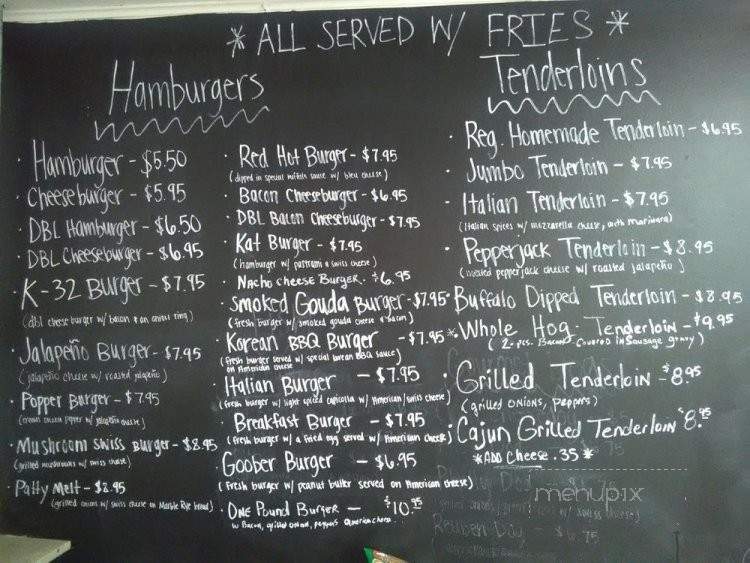 * ALL SERVED W/ FRIES *
Hamburgers
· Hamburger - $5.50
· Cheeseburger - $5.95
· DBL Hamburger - $6.50
· DBL Cheeseburger - $6.95
· K-32 Burger - $7.95
(dbl cheese burger w/ bacon & an onion ring)
· Jalapeño Burger - $7.95
(jalapeño cheese w/ roasted jalapeño)
· Popper Burger - $7.95
(cream cheese popper w/ jalapeño cheese)
· Mushroom Swiss Burger - $8.95
(grilled mushrooms w/ swiss cheese)
· Patty Melt - $8.95
(grilled onions w/ swiss cheese on Marble Rye bread)
· Red Hot Burger - $7.95
(dipped in special sauce w/ bleu cheese)
· Bacon Cheeseburger - $6.95
· DBL Bacon Cheeseburger - $7.95
· Kat Burger - $7.95
(hamburger w/ pastrami & swiss cheese)
· Nacho Cheese Burger. $6.95
· Smoked Gouda Burger - $7.95
(fresh burger w/ smoked gouda cheese & bacon)
· Korean BBQ Burger - $7.95
(fresh burger served w/ special korean BBQ sauce)
on American cheese
· Italian Burger - $7.95
(fresh burger w/ light spiced capicola w/ American/swiss cheese)
· Breakfast Burger - $7.95
(fresh burger w/ a fried egg served w/ American cheese)
Goober Burger - $6.95
(fresh burger w/ peanut butter served on American cheese)
· One Pound Burger - $10.95
w/ Bacon, grilled onion, peppers American cheese
Tenderloins
· Reg. Homemade Tenderloin - $6.95
· Jumbo Tenderloin - $7.95
· Italian Tenderloin - $7.95
(italian spices w/ mozzarella cheese, with marinara)
· Pepperjack Tenderloin - $8.95
(melted pepperjack cheese w/ roasted jalapeño)
· Buffalo Dipped Tenderloin - $8.95
* Whole Hog. Tenderloin - $9.95
(2-pcs. Bacon Covered in Sausage gravy)
· Grilled Tenderloin - $8.95
(grilled onions, peppers)
· Cajun Grilled Tenderloin $8.95
* ADD Cheese .35 *
menupix
Reuben Dog - $6.75